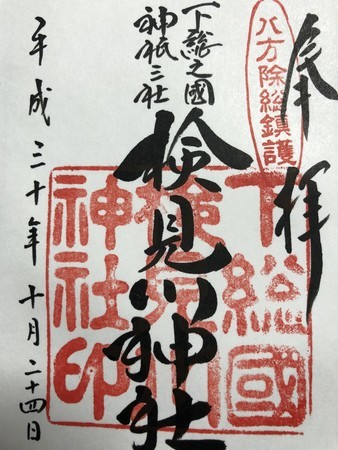 奉拝
八方除総鎮護
下総之國
神祇三社
検見川神社
下総國
検見川
神社印
平成三十年十月二十四日